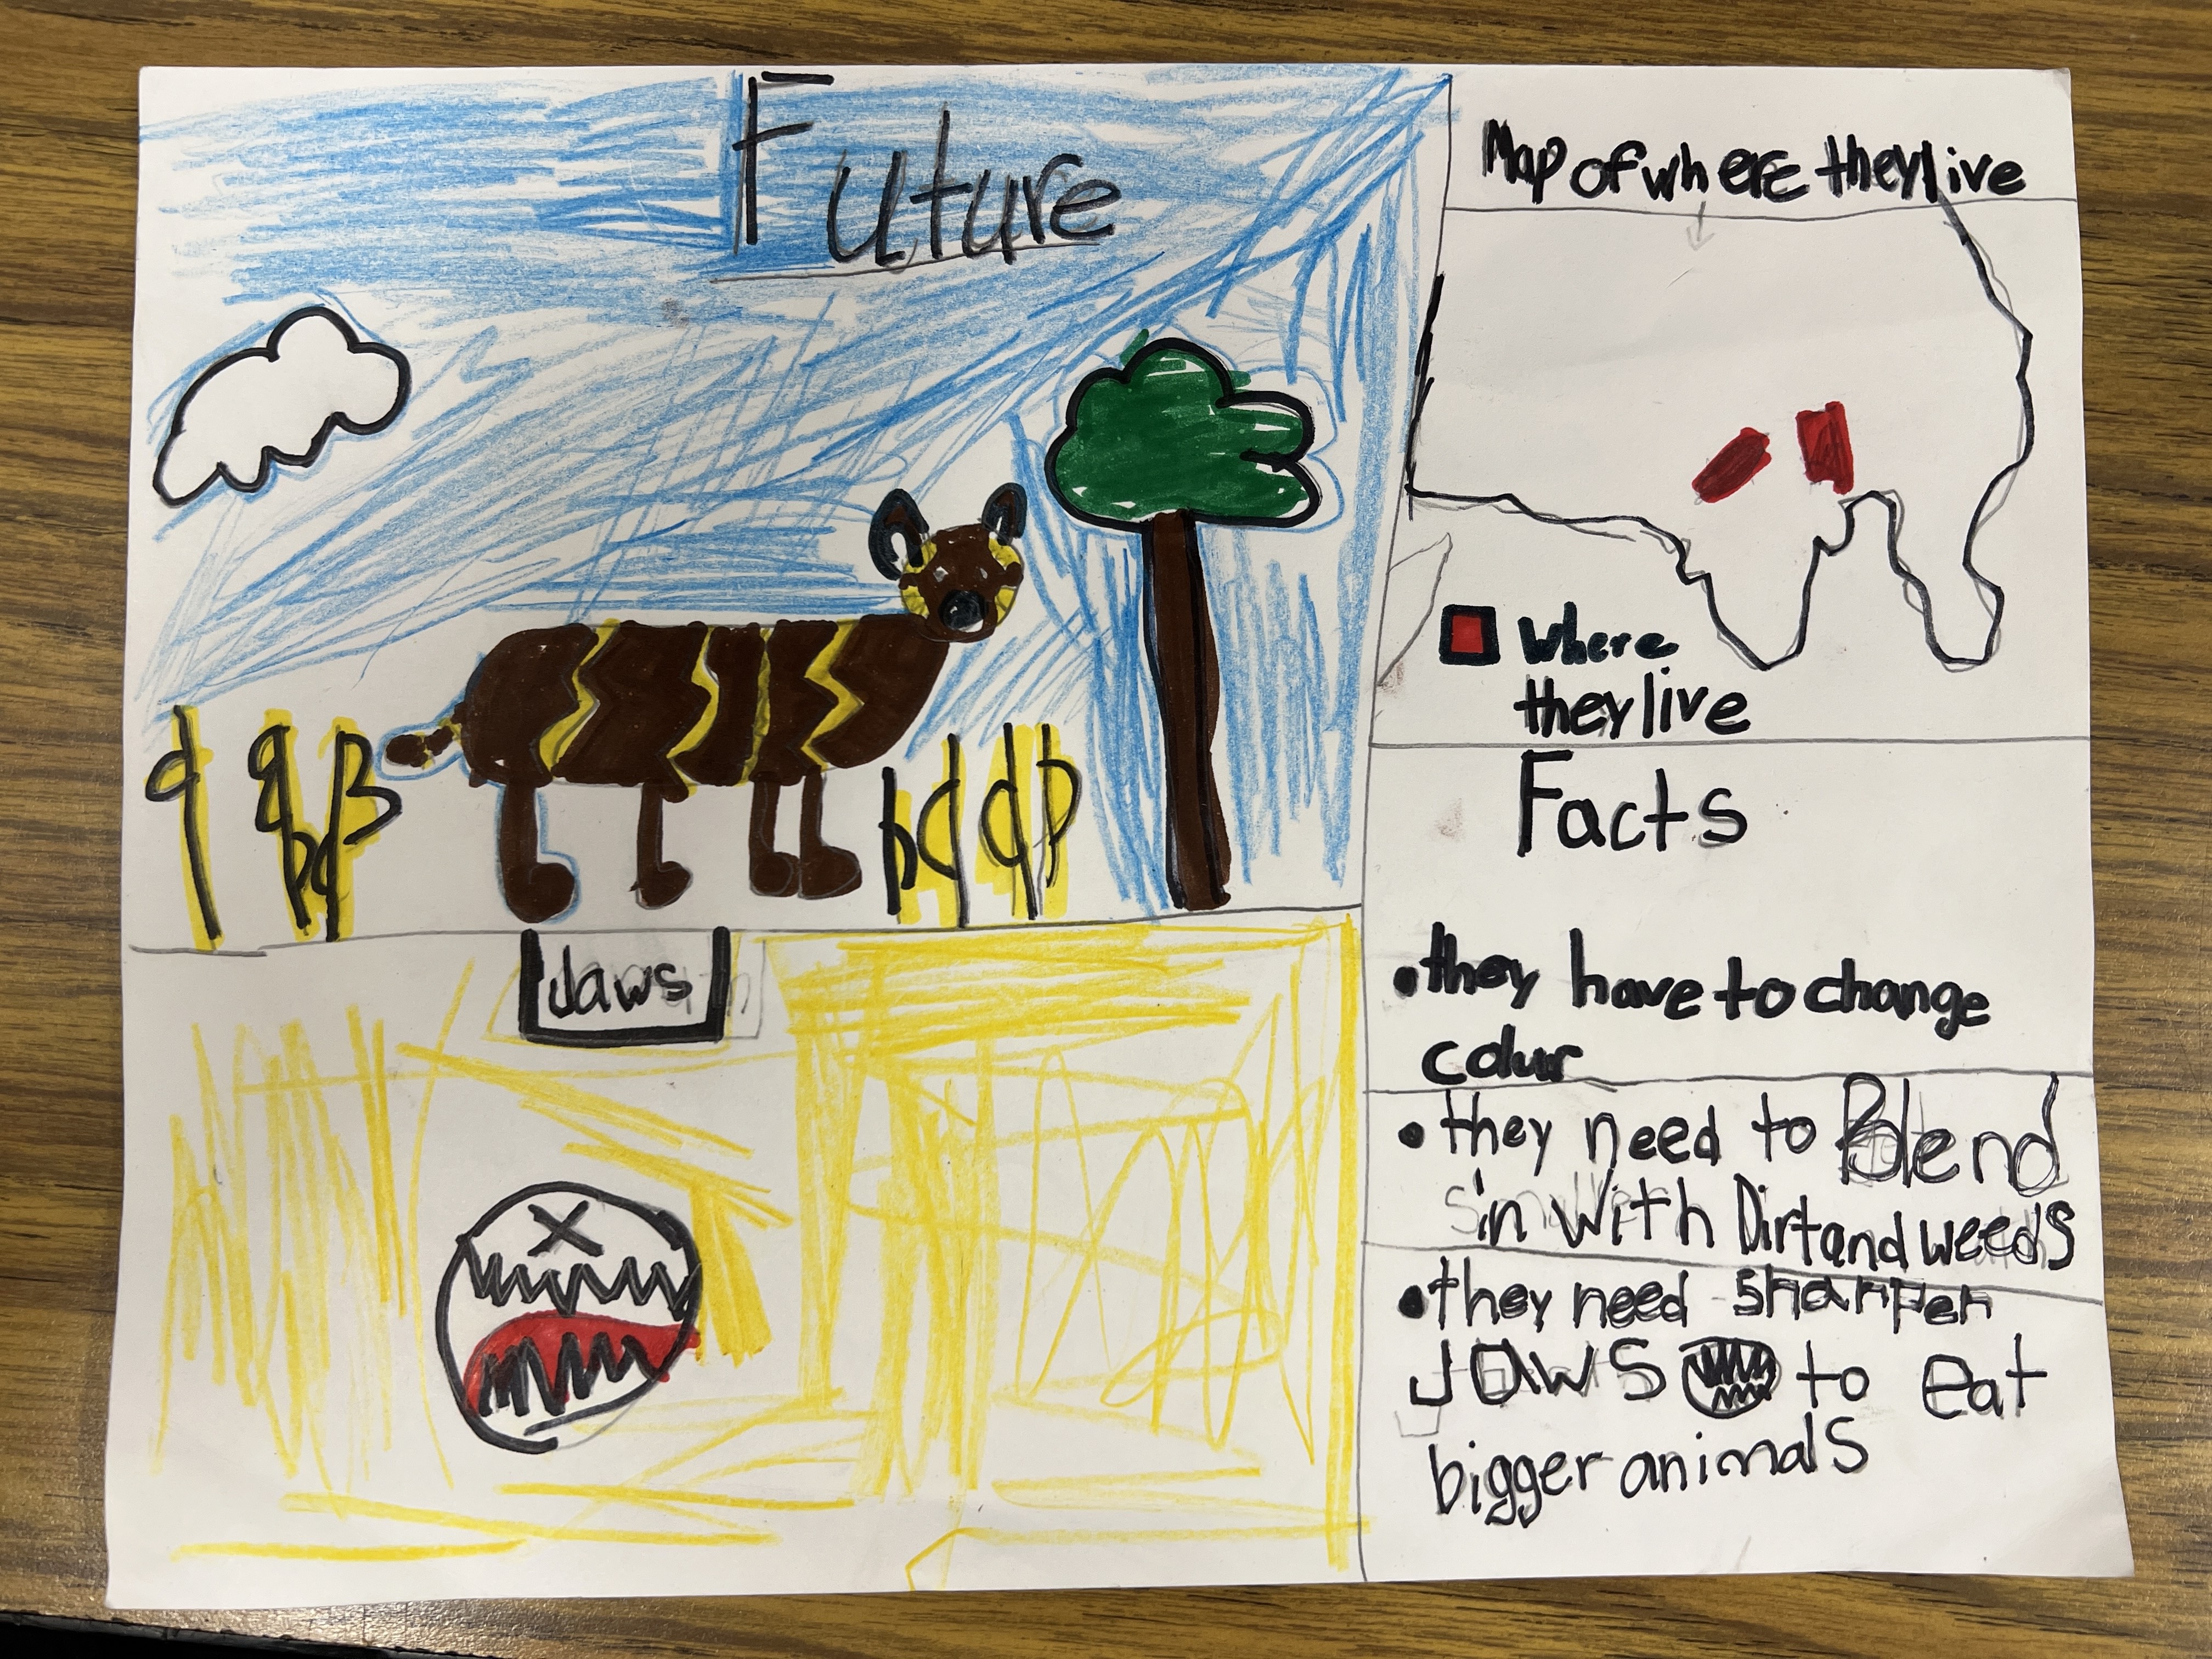 Future
Map of where they live
where
they live
Facts
• they have to change
colur
• they need to Blend
in with Dirt and weeds
• they need sharper
JawS to eat
bigger animals
Jaws